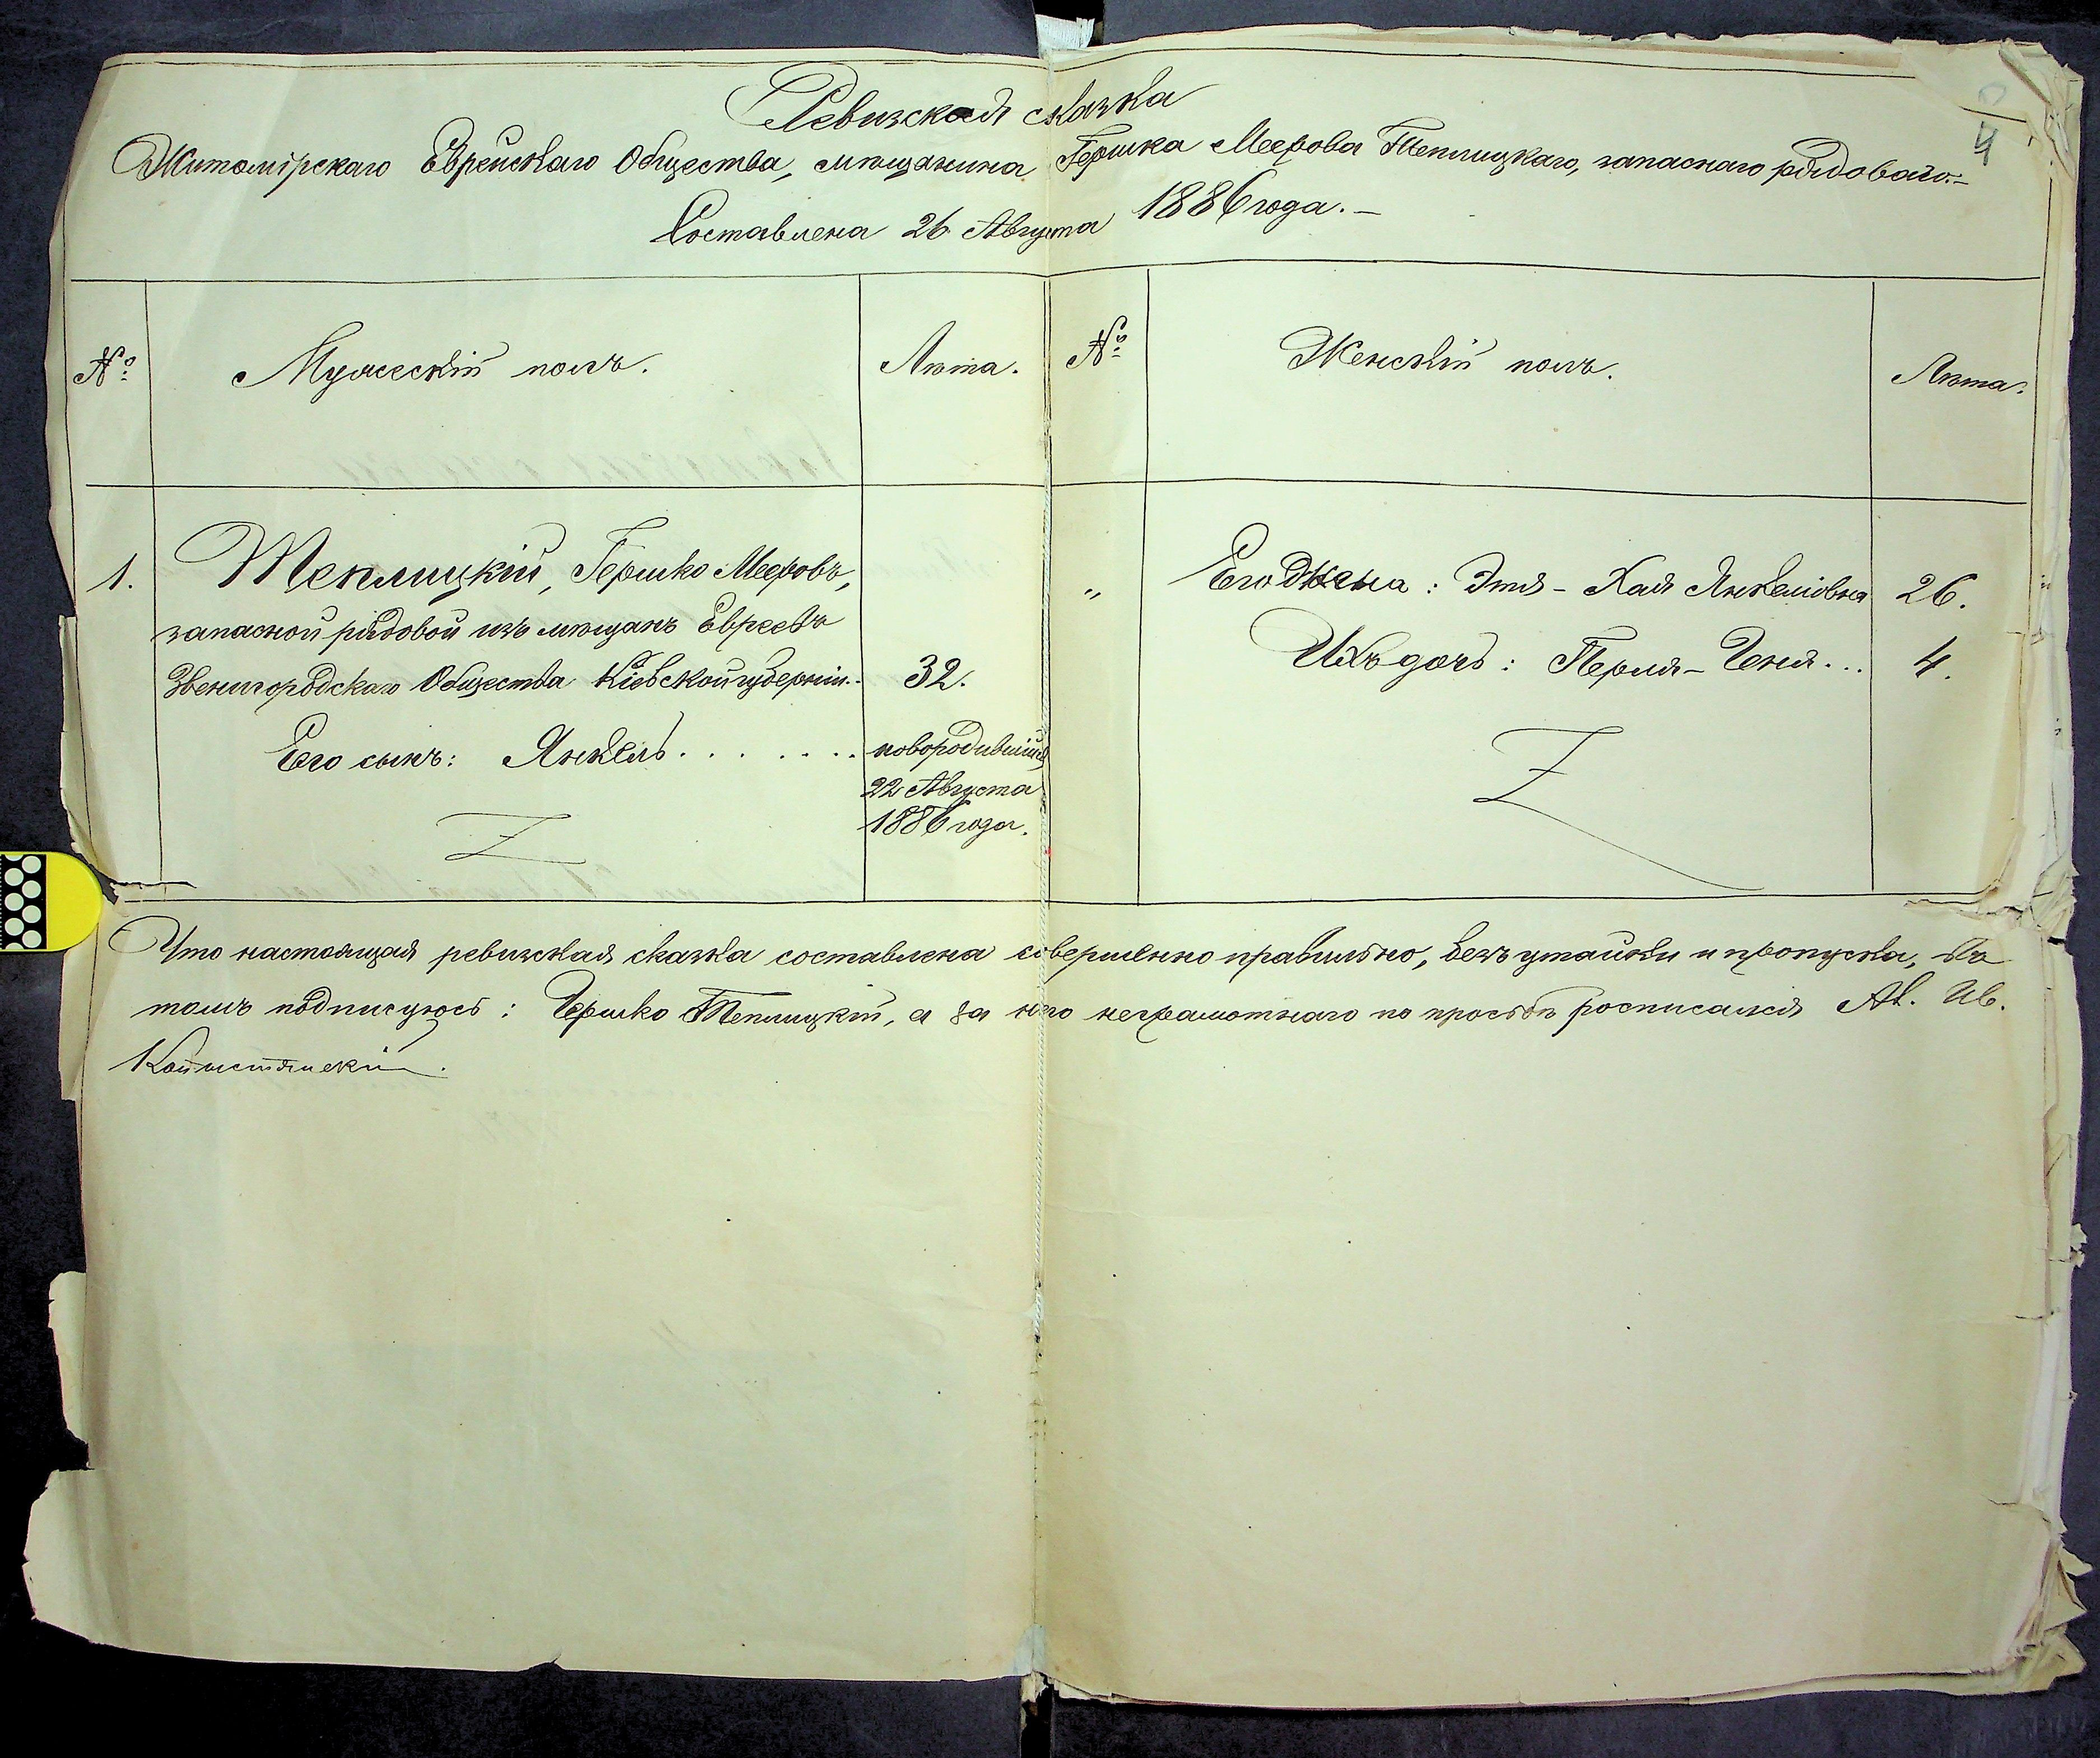 4
Ревизская сказка
Житомірскаго Еврейскаго Общества, мѣщанина Гершка Меерова Теплицкаго, запаснаго рядоваго.-
Составлена 26 Августа 1886 года.-
№ Мужескій полъ. Лѣта. № Женскій полъ. Лѣта.
1. Теплицкій, Гершко Мееровъ, " Его жена: Этя-Хая Янкелiовна 26.
запасной рядовой изъ мѣщанъ Евреевъ Ихъ дочь: Перля-Геня... 4.
Звенигородскаго Общества Кіевской губерніи.. 32.
Его сынъ: Янкель....... новородившійся
22 Августа
1886 года.
Что настоящая ревизская сказка составлена совершенно правильно, безъ утайки и пропуска, въ
томъ подписуюсь: Гершко Теплицкій, а за него неграмотнаго по просьбѣ росписался Ав. Ив.